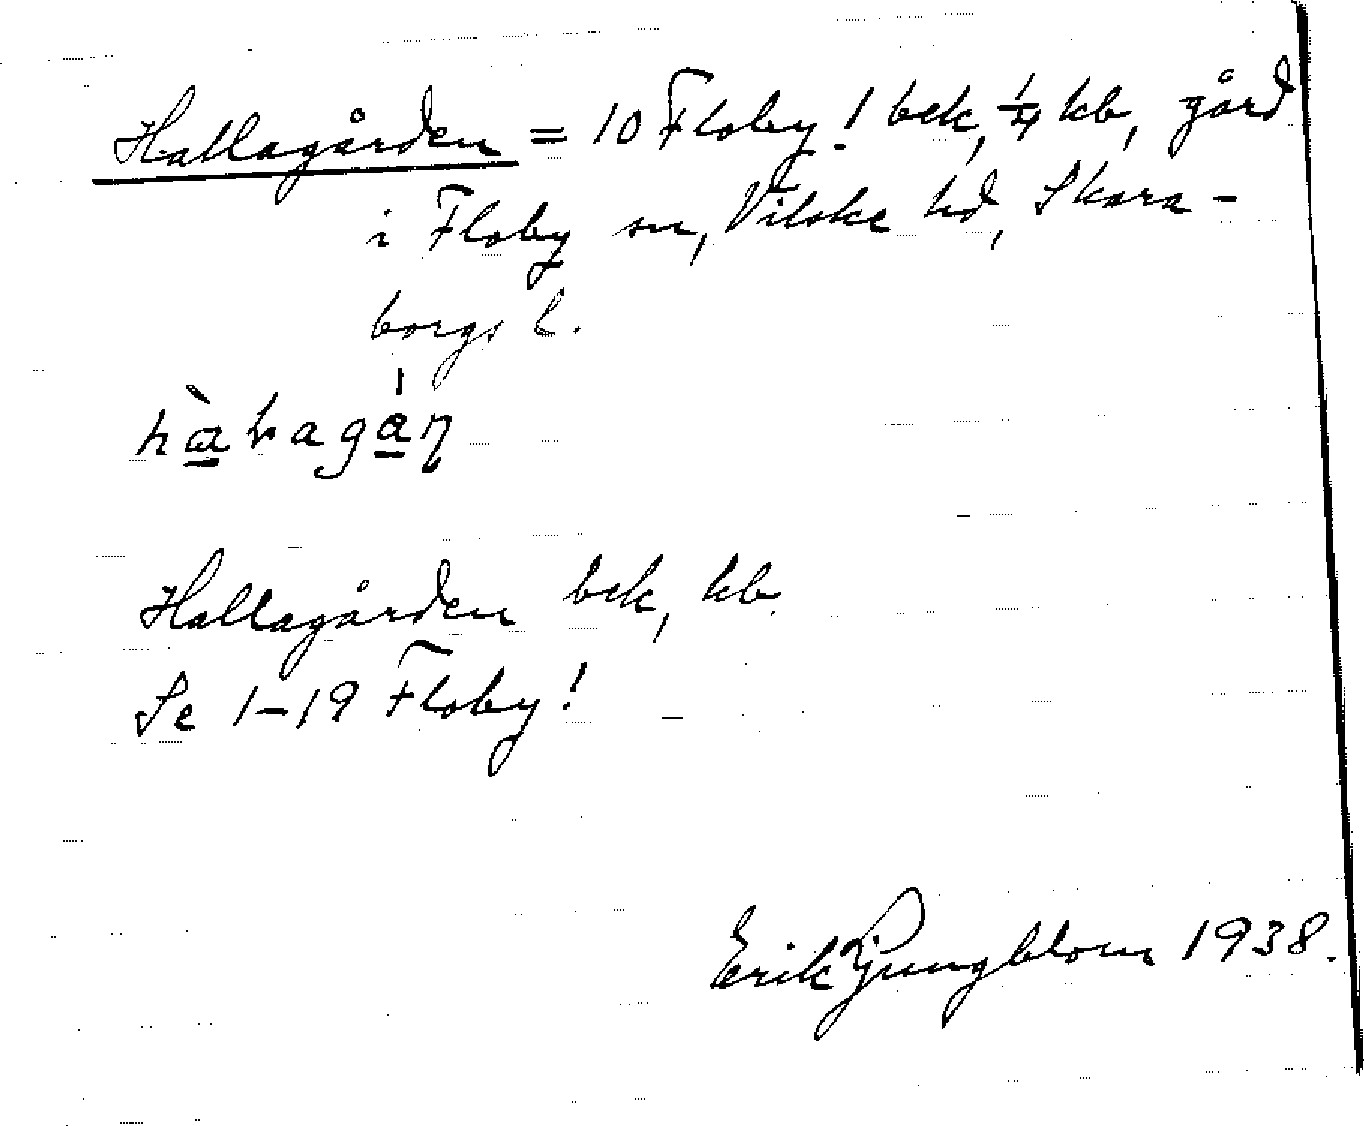 Hallagården = 10 Floby! bek, 1/4 kb, gård
i Floby sn, Vilske hd, Skara-
borgs l.
Hallagården bek, kb.
Se 1-19 Floby!
Erik Ljungblom 1938.